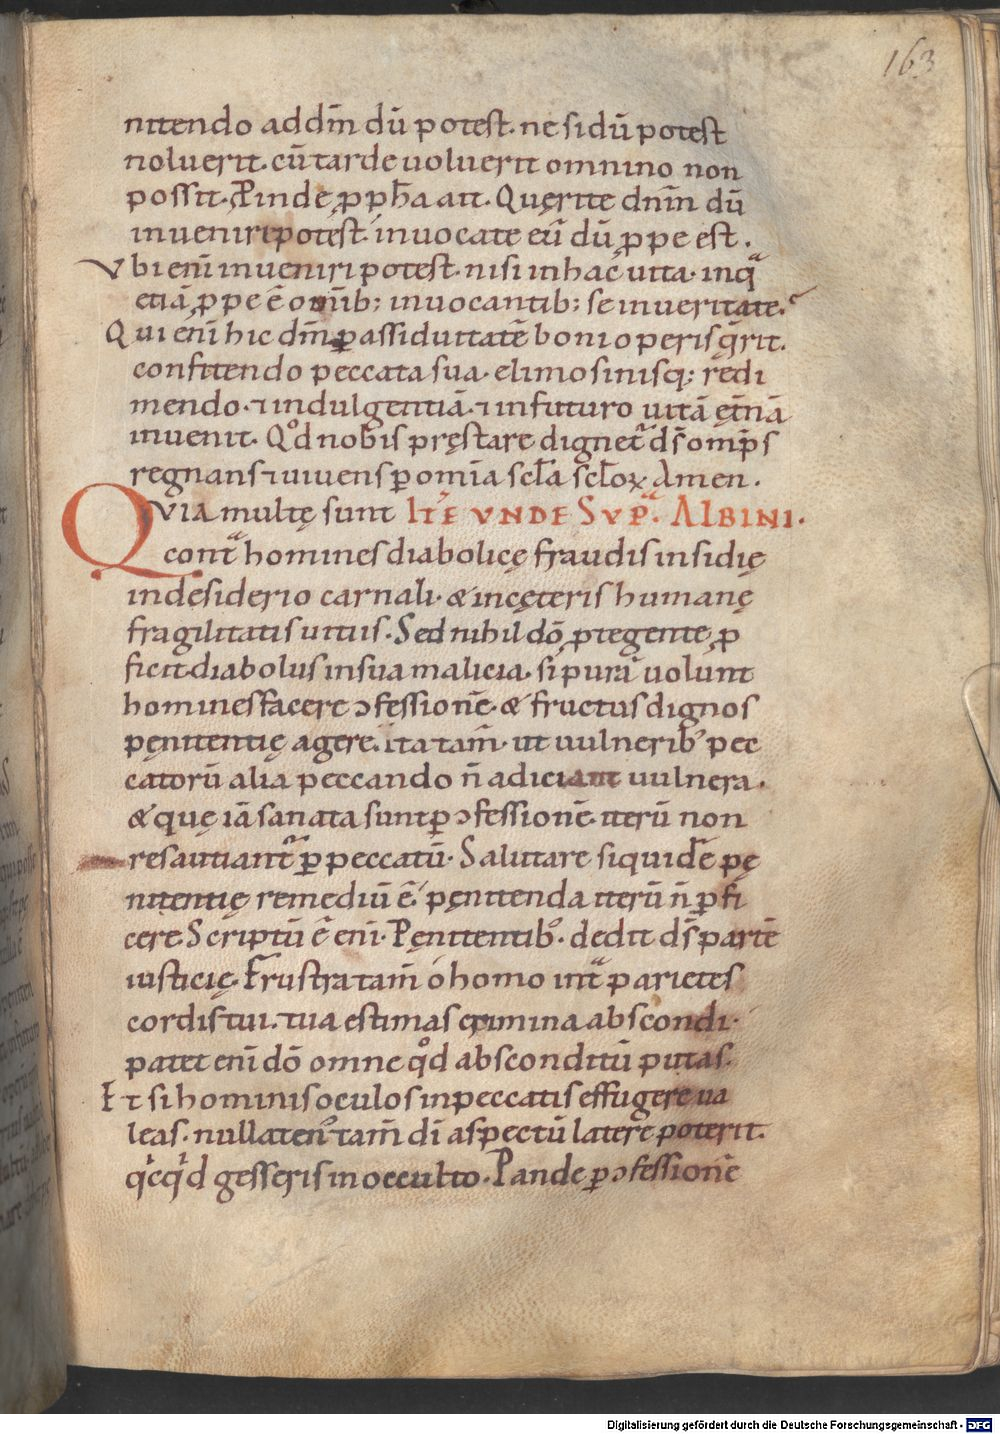 163
nitendo ad dm̄ dū potest. ne si dū potest
noluerit. cū tarde uoluerit omnino non
possit. Proinde ꝓph̄a ait. Quęrite dn̄m dū
inueniri potest. inuocate eū dū ꝓpe est.
Vbi eni̅ inueniri potest. nisi in hac̄ uita. in qᵃ
etiā ꝓpe ē om̄ib; inuocantib; se in ueritate.
Qui eni̅ hic dm̄ ꝑ assiduitatē boni operis q̄rit.
confitendo peccata sua. elimosinisq; redi
mendo. ⁊ indulgentiā. ⁊ in futuro uitā et̄nā
inuenit. Qᵒd nobis pręstare dignetᵘ ds̄ omīps
regnans ⁊ uiuens ꝑ omīa scl̄a scl̄oꝝ Amen.
QVIA multę sunt ITĒ VNDE SVPᵃ. ALBINI.
contᵃ homines diabolicę fraudis insidię
in desiderio carnali. & in cęteris humanę
fragilitatis uitiis. Sed nihil dō ꝓtegente ꝓ
ficit diabolus in sua malicia. si purā uolunt
homines facere ɔfessionē. & fructus dignos
pęnitentię agere. ita tam̄. ut uulnerib' pec
catorū alia peccando n̄ adiciant uulnera.
& quę iā sanata sunt ꝑ ɔfessionē iterū non
resauciantᵘ ꝑ peccatū. Salutare siquidē pę
nitentię remediū ē. pęnitenda iterū n̄ ꝑfi
cere. Scriptū ē eni̅. Pęnitentibᵒ. dedit ds̄ partē
iusticię. Frustra tam̄ o homo intᵃ parietes
cordis tui. tua estimas crimina abscondi.
patet eni̅ dō omne qᵒd absconditū putas.
Et si hominis oculos in peccatis effugere ua
leas. nullatenᵒ tam̄ di̅ aspectū latere poterit.
qⁱcqⁱd gesseris in occulto. Pande ꝑ ɔfessionē
Digitalisierung gefördert durch die Deutsche Forschungsgemeinschaft - DFG